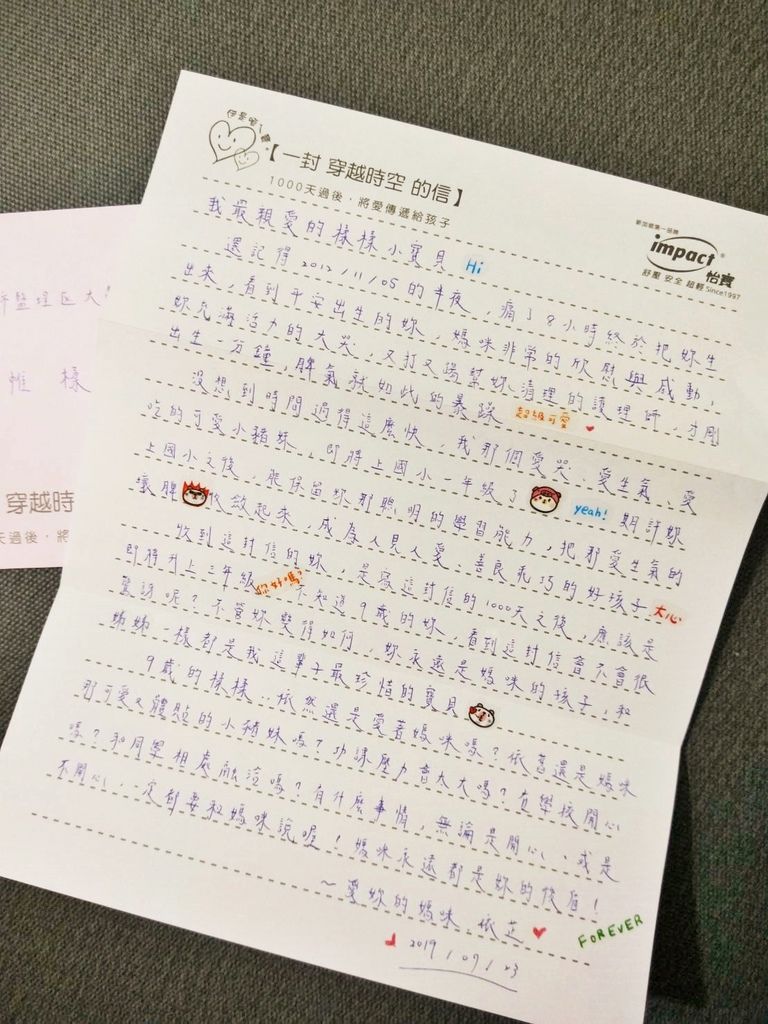 【一封 穿越時空 的信】
1000天過後，將愛傳遞給孩子
impact®
怡寶
舒壓 安全 超輕 Since1997
我最親愛的樣樣小寶貝 Hi
還記得2012/11/05的半夜，痛了8小時終於把妳生
出來，看到平安出生的妳，媽咪非常的欣慰與感動，
妳充滿活力的大哭，又打又踢幫妳清理的護理師，才剛
出生一分鐘，脾氣就如此的暴躁 超級可愛
沒想到時間過得這麼快，我那個愛哭、愛生氣、愛
吃的可愛小豬妹，即將上國小一年級了 yeah! 期許妳
上國小之後，能保留妳那聰明的學習能力，把那愛生氣的
壞脾 收斂起來，成為人見人愛、善良乖巧的好孩子 大心
收到這封信的妳，是寫這封信的1000天之後，應該是
即將升上三年級 你好嗎? 不知道9歲的妳，看到這封信會不會很
驚訝呢？不管妳變得如何，妳永遠是媽咪的孩子，和
姊姊一樣都是我這輩子最珍惜的寶貝
9歲的樣樣，依然還是愛著媽咪嗎？依舊還是媽咪
那可愛又體貼的小豬妹嗎？功課壓力會太大嗎？在學校開心
嗎？和同學相處融洽嗎？有什麼事情，無論是開心、或是
不開心，一定都要和媽咪說喔！媽咪永遠都是妳的後盾！
～愛妳的媽咪 依芷
FOREVER
2019/09/23
盤埕区大
惟 樣
穿越時
天過後，將